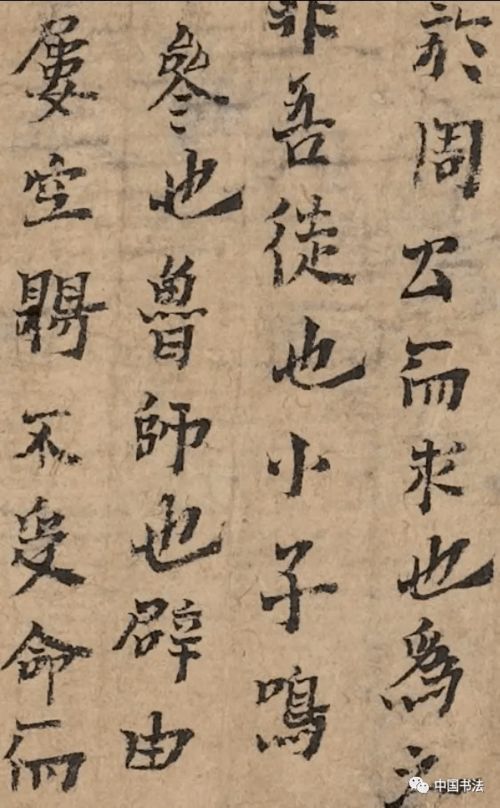 於周公而求也爲之
非吾徒也小子鳴
參也魯師也辟由
屢空賜不受命而
中国书法